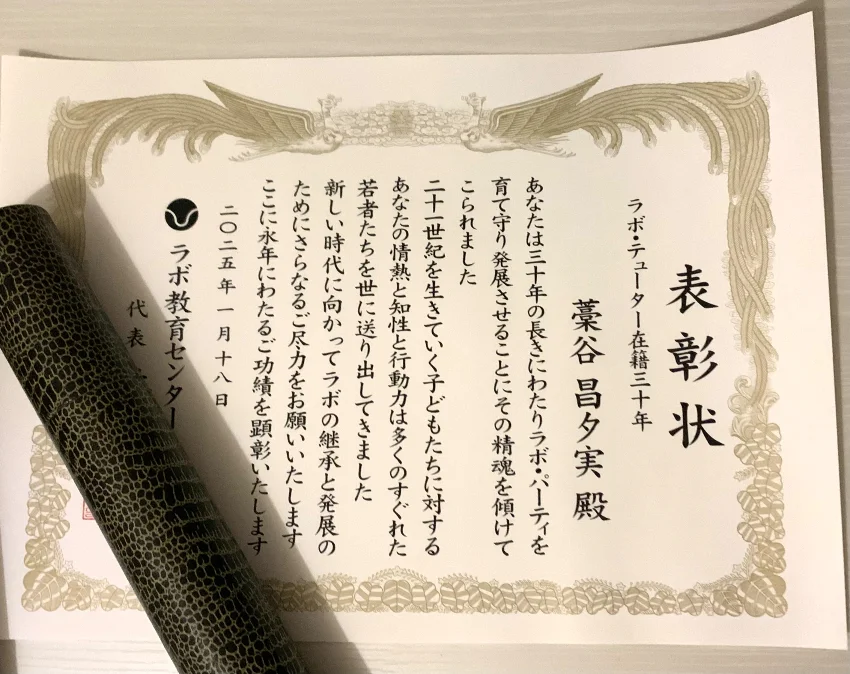 表彰状
ラボ・テューター在籍三十年
藁谷 昌夕実 殿
あなたは三十年の長きにわたりラボ・パーティを
育て守り発展させることにその精魂を傾けて
こられました
二十一世紀を生きていく子どもたちに対する
あなたの情熱と知性と行動力は多くのすぐれた
若者たちを世に送り出してきました
新しい時代に向かってラボの継承と発展の
ためにさらなるご尽力をお願いいたします
ここに永年にわたるご功績を顕彰いたします
二〇二五年一月十八日
ラボ教育センター
代表